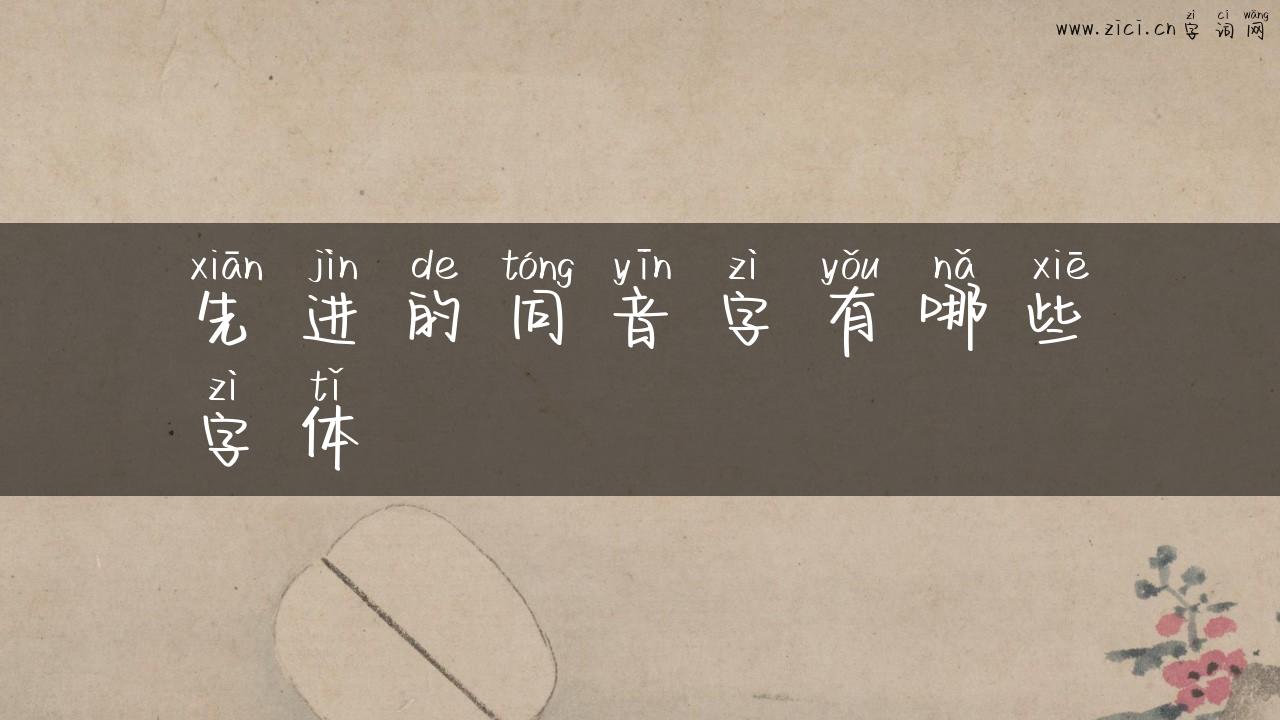 zì cí wǎng
www.zici.cn 字词网
xiān jìn de tóng yīn zì yǒu nǎ xiē
先进的同音字有哪些
zì tǐ
字体